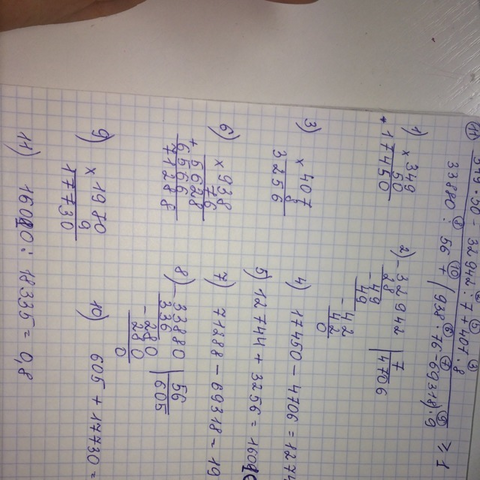 349 · 50 - 32942 : 7 + 407 · 8
33880 : 56 + (938 · 76 - 69318) · 9 ≥ 1
1) × 349
50
17450
2) - 32942 | 7
28 4706
- 49
49
- 42
42
0
3) × 407
8
3256
4) 17450 - 4706 = 1274
5) 12744 + 3256 = 160
6) × 938
76
+ 5628
6566
71288
7) 71388 - 69318 = 19
8) 33880 | 56
336 605
- 280
280
0
9) × 1980
9
17730
10) 605 + 17730 =
11) 16000 : 18335 = 0,8